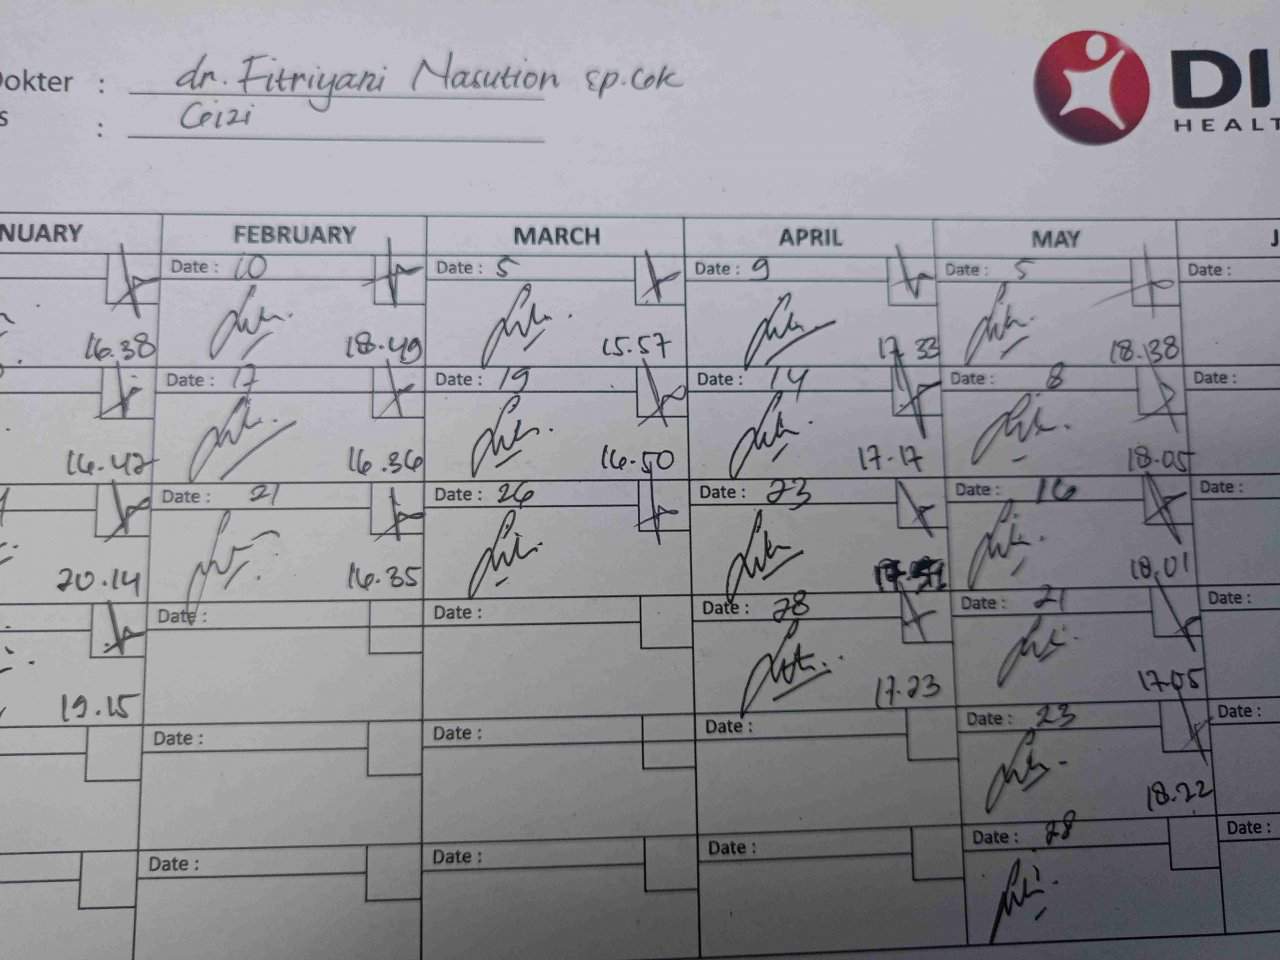 Dokter : dr. Fitriyani Nasution sp.GK
s : Gizi
DI
HEALT
NUARY FEBRUARY MARCH APRIL MAY J
Date : 10 Date : 5 Date : 9 Date : 5 Date :
16.38 18.49 15.57 17.33 18.38
Date : 17 Date : 19 Date : 14 Date : 8 Date :
16.42 16.36 16.50 17.17 18.05
Date : 21 Date : 26 Date : 23 Date : 16 Date :
20.14 16.35 18.01
Date : Date : Date : 28 Date : 21 Date :
19.15 17.23 17.05
Date : Date : Date : Date : 23 Date :
18.22
Date : Date : Date : Date : 28 Date :